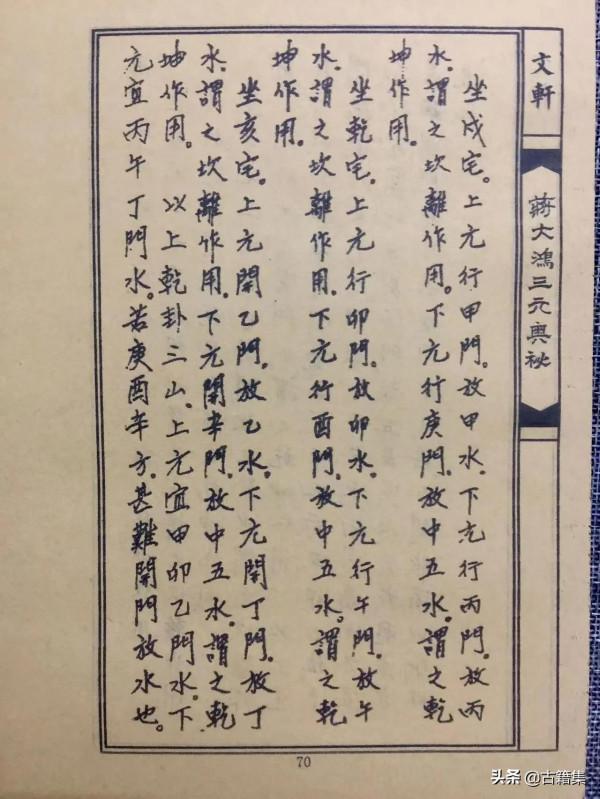 文軒
蔣大鴻三元奧祕
坐戌宅。上元行甲門。放甲水。下元行丙門。放丙
水。謂之坎離作用。下元行庚門。放中五水。謂之乾
坤作用。
坐乾宅。上元行卯門。放卯水。下元行午門。放午
水。謂之坎離作用。下元行酉門。放中五水。謂之乾
坤作用。
坐亥宅。上元開乙門。放乙水。下元開丁門。放丁
水。謂之坎離作用。下元開辛門。放中五水。謂之乾
坤作用。以上乾卦三山。上元宜甲卯乙門水。下
元宜丙午丁門水。若庚酉辛方。甚難開門放水也。
70
头条 @古籍集